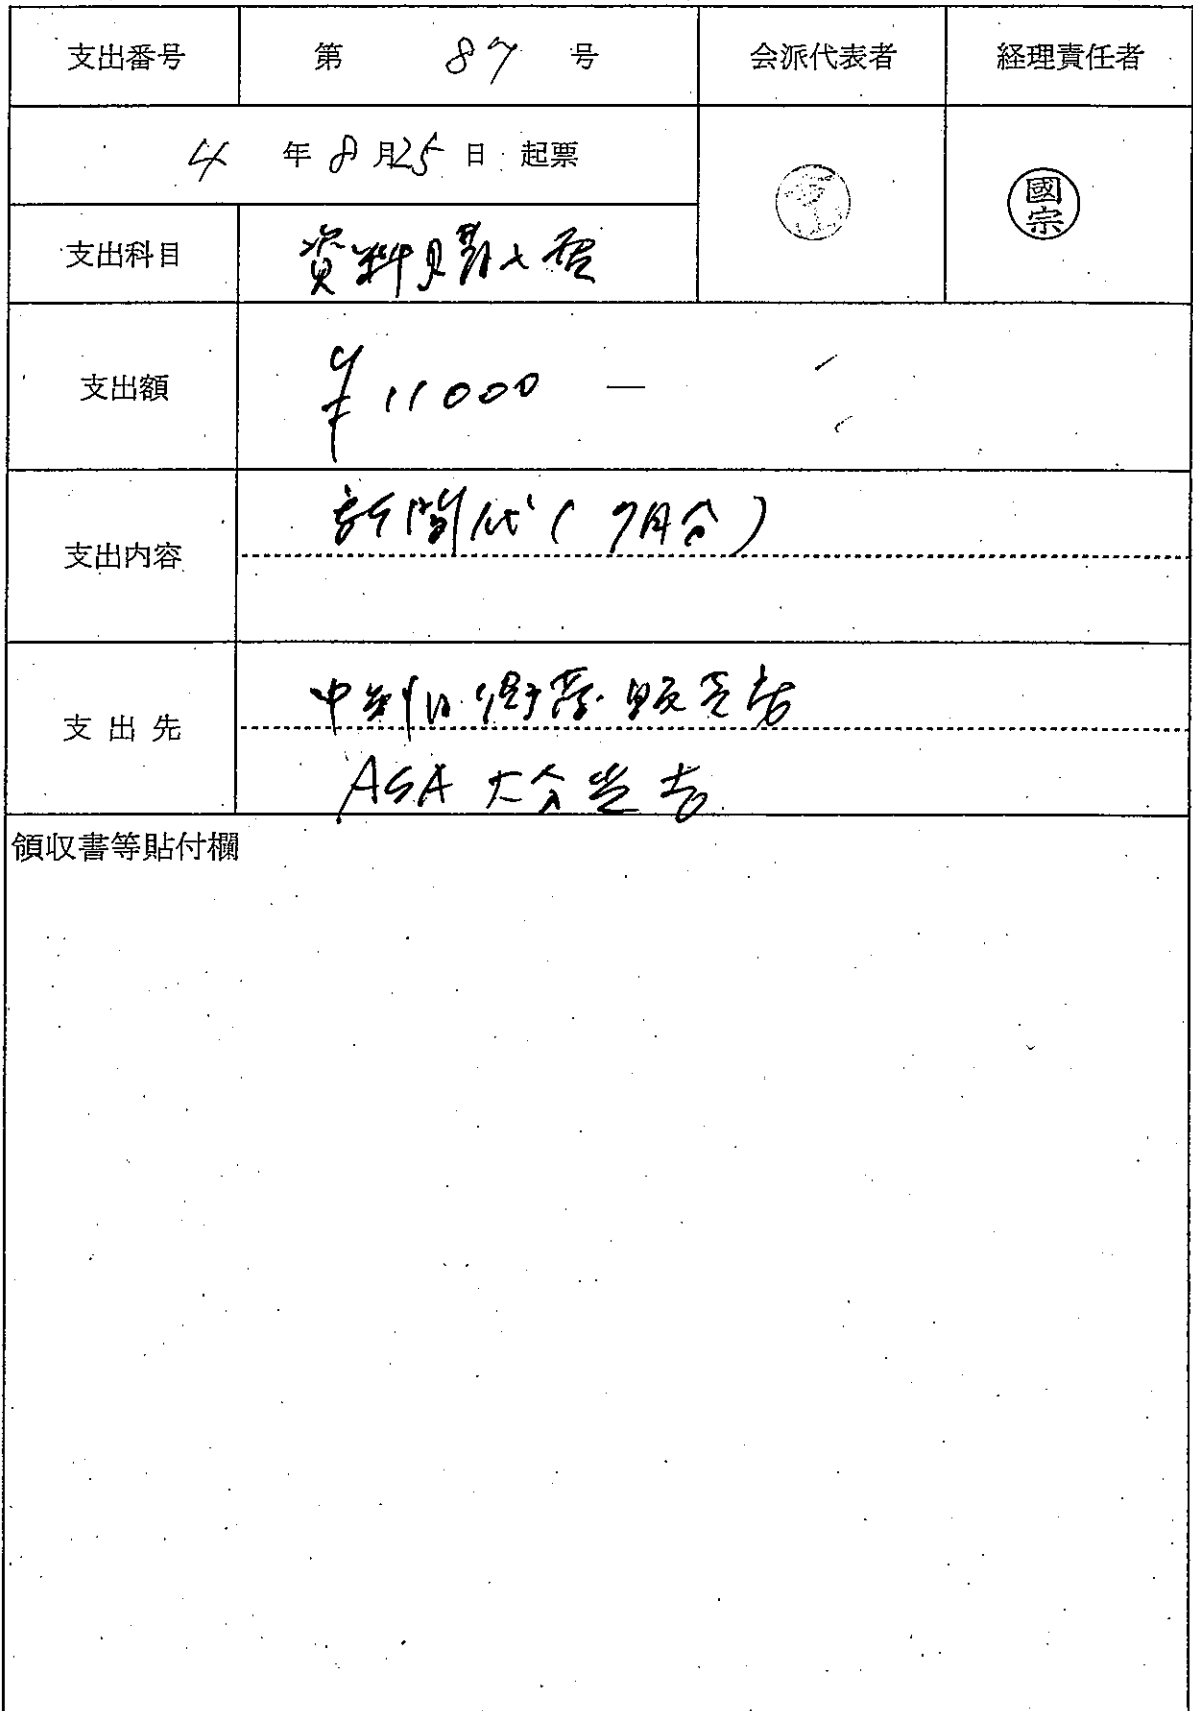 支出番号 第 87 号 会派代表者 経理責任者
4 年 8 月 25 日 起票
國宗
支出科目 資料購入費
支出額 ¥11000 —
支出内容 新聞代(7月分)
支出先 販売店
ASA 大分 店
領収書等貼付欄